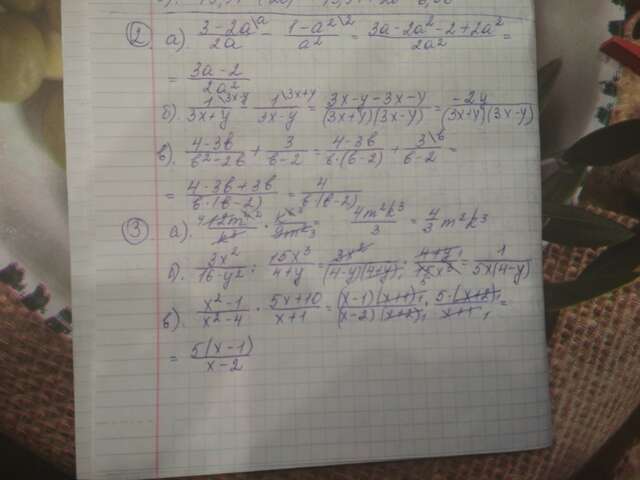 ② а). (3-2a\a)/(2a) - (1-a²\2)/(a²) = (3a-2a²-2+2a²)/(2a²) =
= (3a-2)/(2a²)
б). (1\3x-y)/(3x+y) - (1\3x+y)/(3x-y) = (3x-y-3x-y)/((3x+y)(3x-y)) = (-2y)/((3x+y)(3x-y))
в). (4-3b)/(b²-2b) + 3/(b-2) = (4-3b)/(b·(b-2)) + (3\b)/(b-2) =
= (4-3b+3b)/(b·(b-2)) = 4/(b(b-2))
③ а). = (4m²k³)/3 = 4/3 m²k³
б). (3x²)/(16-y²) : (15x³)/(4+y) = (3x²)/((4-y)(4+y)) · (4+y)/(15x³) = 1/(5x(4-y))
в). (x²-1)/(x²-4) · (5x+10)/(x+1) = ((x-1)(x+1))/((x-2)(x+2)) · (5·(x+2))/(x+1) =
= (5(x-1))/(x-2)